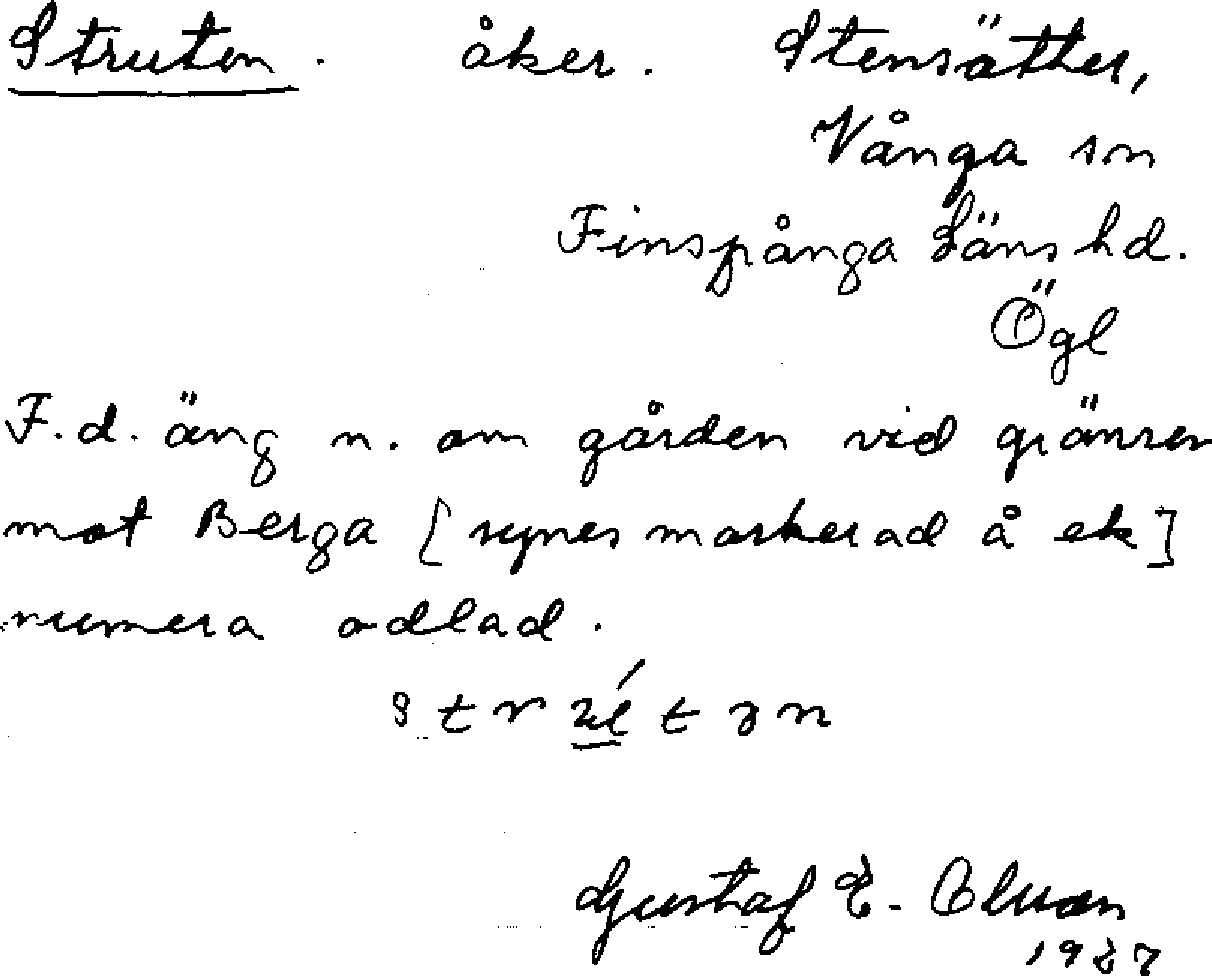 Struten. åker. Stensätter,
Vånga sn
Finspånga läns hd.
Ögl
F.d. äng n. om gården vid gränsen
mot Berga [synes markerad å ek]
numera odlad.
Gustaf E.
1927